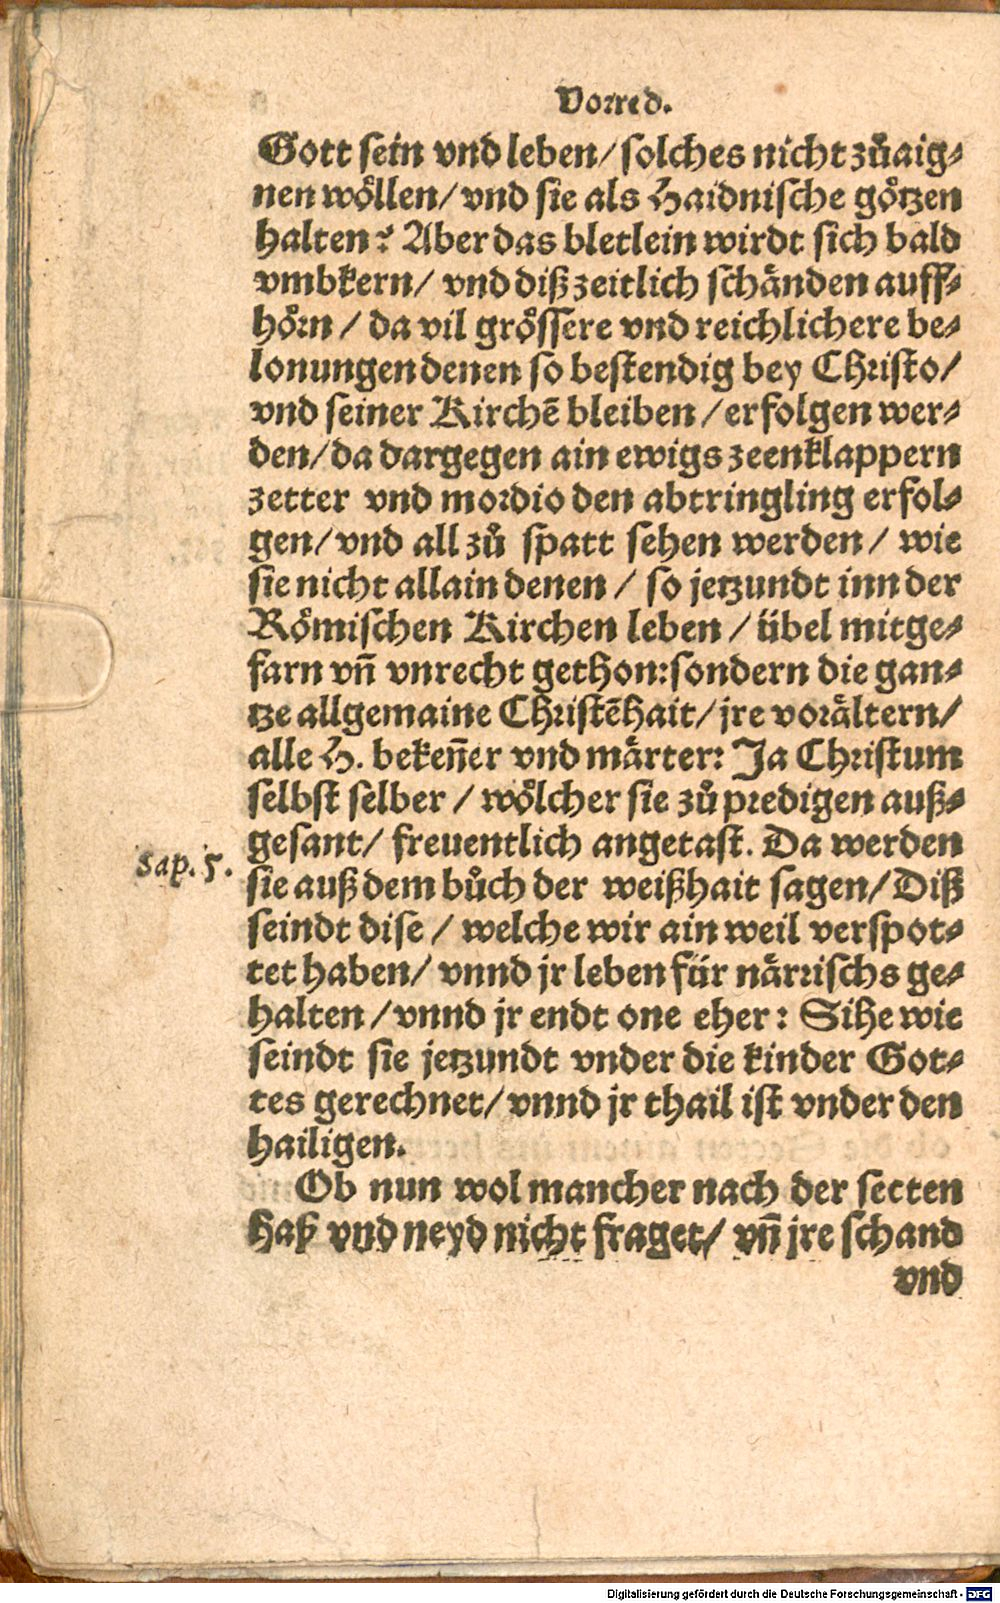 Vorred.
Gott sein vnd leben/ solches nicht zůaig⸗
nen wöllen/ vnd sie als Haidnische götzen
halten? Aber das bletlein wirdt sich bald
vmbkern/ vnd diß zeitlich schänden auff⸗
hörn / da vil grössere vnd reichlichere be⸗
lonungen denen so bestendig bey Christo/
vnd seiner Kirchē bleiben / erfolgen wer⸗
den/ da dargegen ain ewigs zeenklappern
zetter vnd mordio den abtringling erfol⸗
gen/ vnd all zů spatt sehen werden / wie
sie nicht allain denen / so jetzundt inn der
Römischen Kirchen leben / übel mitge⸗
farn vn̄ vnrecht gethon: sondern die gan⸗
tze allgemaine Christēhait/ jre vorältern/
alle H. beken̄er vnd märter: Ja Christum
selbst selber / wölcher sie zů predigen auß⸗
gesant/ freuentlich angetast. Da werden
Sap. 5.
sie auß dem bůch der weißhait sagen/ Diß
seindt dise / welche wir ain weil verspot⸗
tet haben/ vnnd jr leben für närrischs ge⸗
halten / vnnd jr endt one eher: Sihe wie
seindt sie jetzundt vnder die kinder Got⸗
tes gerechnet/ vnnd jr thail ist vnder den
hailigen.
Ob nun wol mancher nach der secten
haß vnd neyd nicht fraget/ vn̄ jre schand
vnd
Digitalisierung gefördert durch die Deutsche Forschungsgemeinschaft - DFG